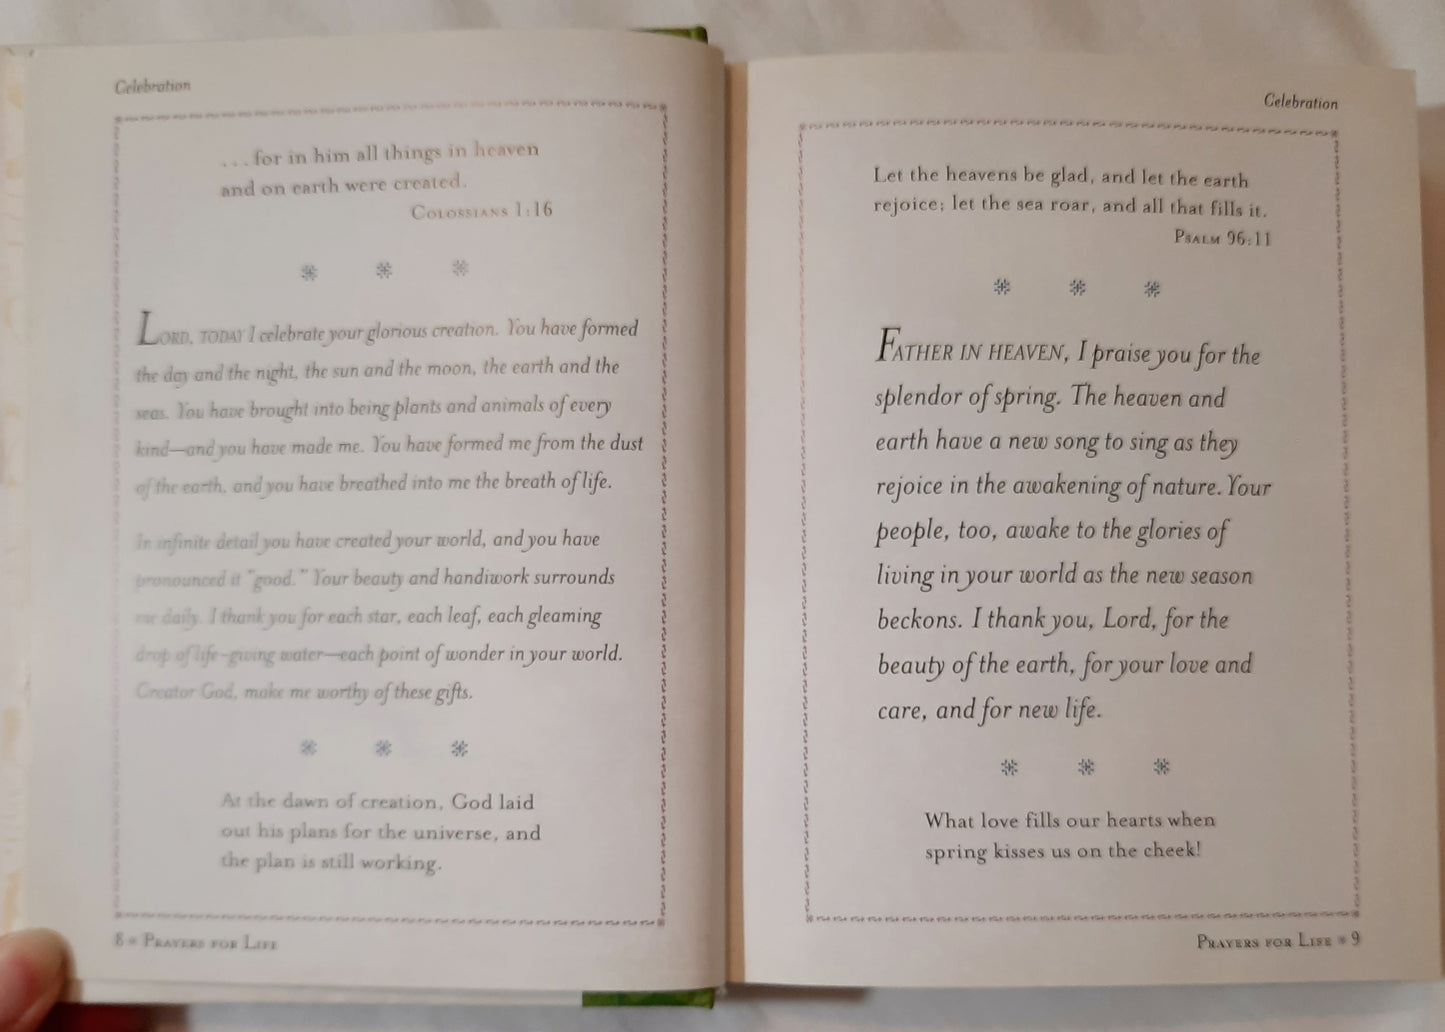 Celebration
. . . for in him all things in heaven
and on earth were created.
Colossians 1:16
Lord, today I celebrate your glorious creation. You have formed
the day and the night, the sun and the moon, the earth and the
seas. You have brought into being plants and animals of every
kind—and you have made me. You have formed me from the dust
of the earth, and you have breathed into me the breath of life.
In infinite detail you have created your world, and you have
pronounced it "good." Your beauty and handiwork surrounds
me daily. I thank you for each star, each leaf, each gleaming
drop of life-giving water—each point of wonder in your world.
Creator God, make me worthy of these gifts.
At the dawn of creation, God laid
out his plans for the universe, and
the plan is still working.
8 * Prayers for Life
Celebration
Let the heavens be glad, and let the earth
rejoice; let the sea roar, and all that fills it.
Psalm 96:11
Father in heaven, I praise you for the
splendor of spring. The heaven and
earth have a new song to sing as they
rejoice in the awakening of nature. Your
people, too, awake to the glories of
living in your world as the new season
beckons. I thank you, Lord, for the
beauty of the earth, for your love and
care, and for new life.
What love fills our hearts when
spring kisses us on the cheek!
Prayers for Life * 9